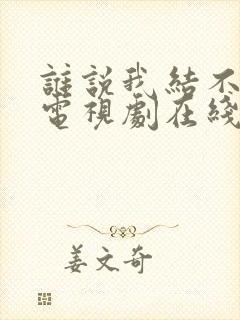 誰說我結不
電視劇在綫
姜文奇